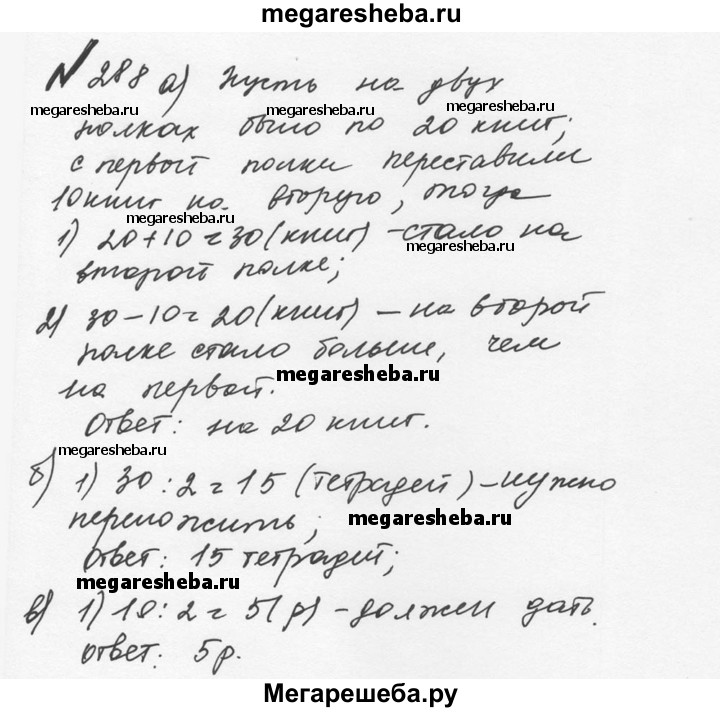 megaresheba.ru
№ 288 а) Пусть на двух
megaresheba.ru megaresheba.ru megaresheba.ru
полках было по 20 книг;
с первой полки переставили
10 книг на вторую, тогда
megaresheba.ru
1) 20+10=30(книг) - стало на
megaresheba.ru
второй полке;
2) 30-10=20(книг) - на второй
полке стало больше, чем
на первой.
megaresheba.ru
Ответ: на 20 книг.
megaresheba.ru
б) 1) 30:2=15 (тетрадей) - нужно
переложить;
megaresheba.ru
Ответ: 15 тетрадей;
megaresheba.ru
в) 1) 10:2=5(р) - должен дать.
ответ: 5р.
Мегарешеба.ру